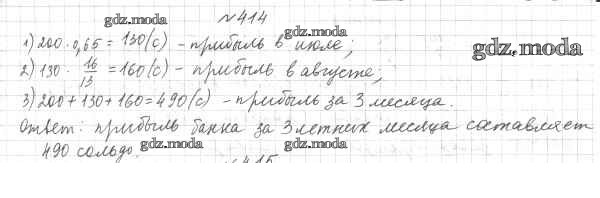 №414
gdz.moda
1) 200 · 0,65 = 130(с) - прибыль в июле;
gdz.moda
gdz.moda
2) 130 · 16/13 = 160(с) - прибыль в августе;
3) 200 + 130 + 160 = 490(с) - прибыль за 3 месяца.
Ответ: прибыль банка за 3 летних месяца составляет
490 сольдо.
gdz.moda
gdz.moda
№415